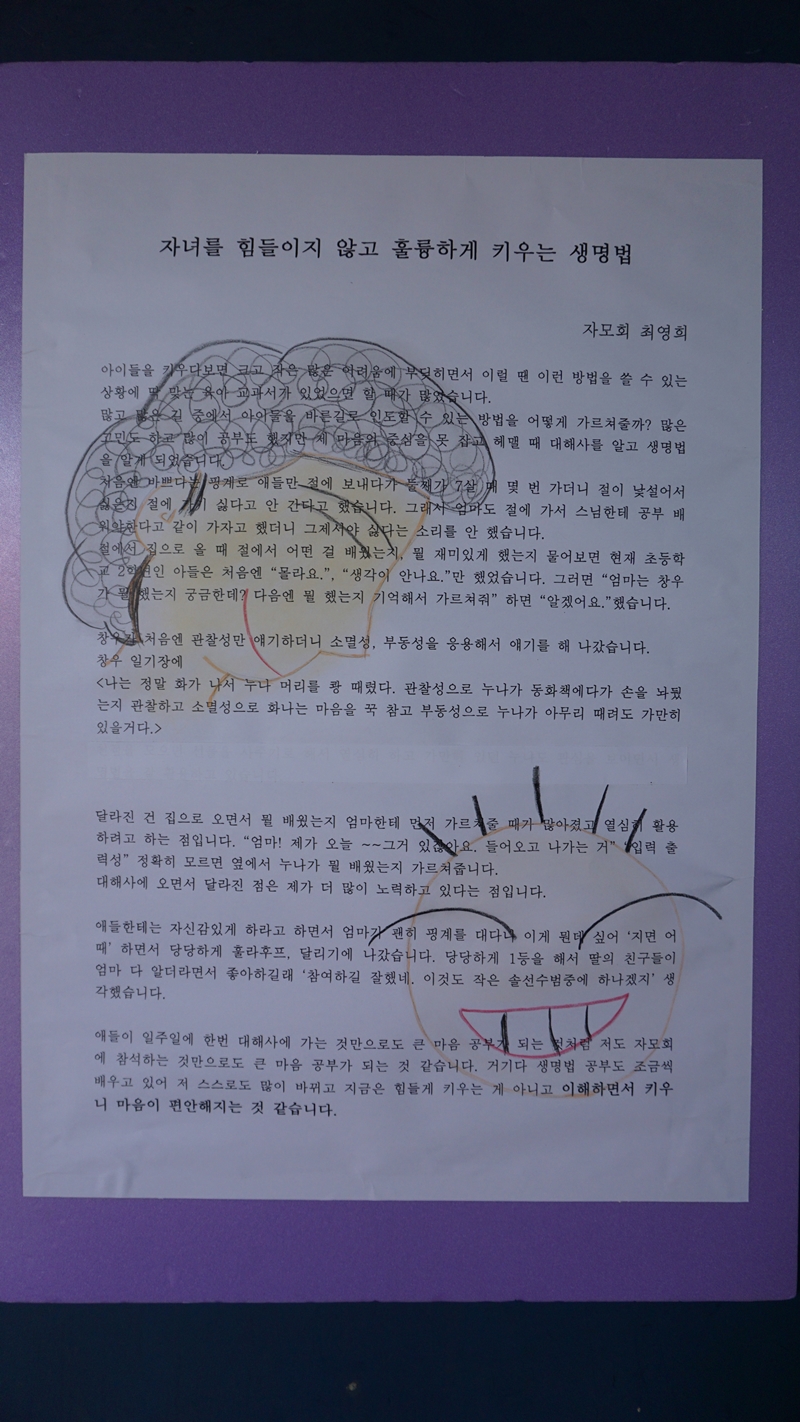 자녀를 힘들이지 않고 훌륭하게 키우는 생명법
자모회 최영희
아이들을 키우다보면 크고 작은 많은 어려움에 부딪히면서 이럴 땐 이런 방법을 쓸 수 있는
상황에 딱 맞는 육아 교과서가 있었으면 할 때가 많았습니다.
많고 많은 길 중에서 아이들을 바른길로 인도할 수 있는 방법을 어떻게 가르쳐줄까? 많은
고민도 하고 많이 공부도 했지만 제 마음의 중심을 못 잡고 헤맬 때 대해사를 알고 생명법
을 알게 되었습니다.
처음엔 바쁘다는 핑계로 애들만 절에 보내다가 둘째가 7살 때 몇 번 가더니 절이 낯설어서
싫은지 절에 가기 싫다고 안 간다고 했습니다. 그래서 엄마도 절에 가서 스님한테 공부 배
워야한다고 같이 가자고 했더니 그제서야 싫다는 소리를 안 했습니다.
절에서 집으로 올 때 절에서 어떤 걸 배웠는지, 뭘 재미있게 했는지 물어보면 현재 초등학
교 2학년인 아들은 처음엔 “몰라요.”, “생각이 안나요.”만 했었습니다. 그러면 “엄마는 창우
가 뭘 했는지 궁금한데? 다음엔 뭘 했는지 기억해서 가르쳐줘” 하면 “알겠어요.”했습니다.
창우가 처음엔 관찰성만 얘기하더니 소멸성, 부동성을 응용해서 얘기를 해 나갔습니다.
창우 일기장에
<나는 정말 화가 나서 누나 머리를 쾅 때렸다. 관찰성으로 누나가 동화책에다가 손을 놔뒀
는지 관찰하고 소멸성으로 화나는 마음을 꾹 참고 부동성으로 누나가 아무리 때려도 가만히
있을거다.>
달라진 건 집으로 오면서 뭘 배웠는지 엄마한테 먼저 가르쳐줄 때가 많아졌고 열심히 활용
하려고 하는 점입니다. “엄마! 제가 오늘 ~~그거 있잖아요. 들어오고 나가는 거” “입력 출
력성” 정확히 모르면 옆에서 누나가 뭘 배웠는지 가르쳐줍니다.
대해사에 오면서 달라진 점은 제가 더 많이 노력하고 있다는 점입니다.
애들한테는 자신감있게 하라고 하면서 엄마가 괜히 핑계를 대다니 이게 뭔데 싶어 ‘지면 어
때’ 하면서 당당하게 훌라후프, 달리기에 나갔습니다. 당당하게 1등을 해서 딸의 친구들이
엄마 다 알더라면서 좋아하길래 ‘참여하길 잘했네. 이것도 작은 솔선수범중에 하나겠지’ 생
각했습니다.
애들이 일주일에 한번 대해사에 가는 것만으로도 큰 마음 공부가 되는 것처럼 저도 자모회
에 참석하는 것만으로도 큰 마음 공부가 되는 것 같습니다. 거기다 생명법 공부도 조금씩
배우고 있어 저 스스로도 많이 바뀌고 지금은 힘들게 키우는 게 아니고 이해하면서 키우
니 마음이 편안해지는 것 같습니다.